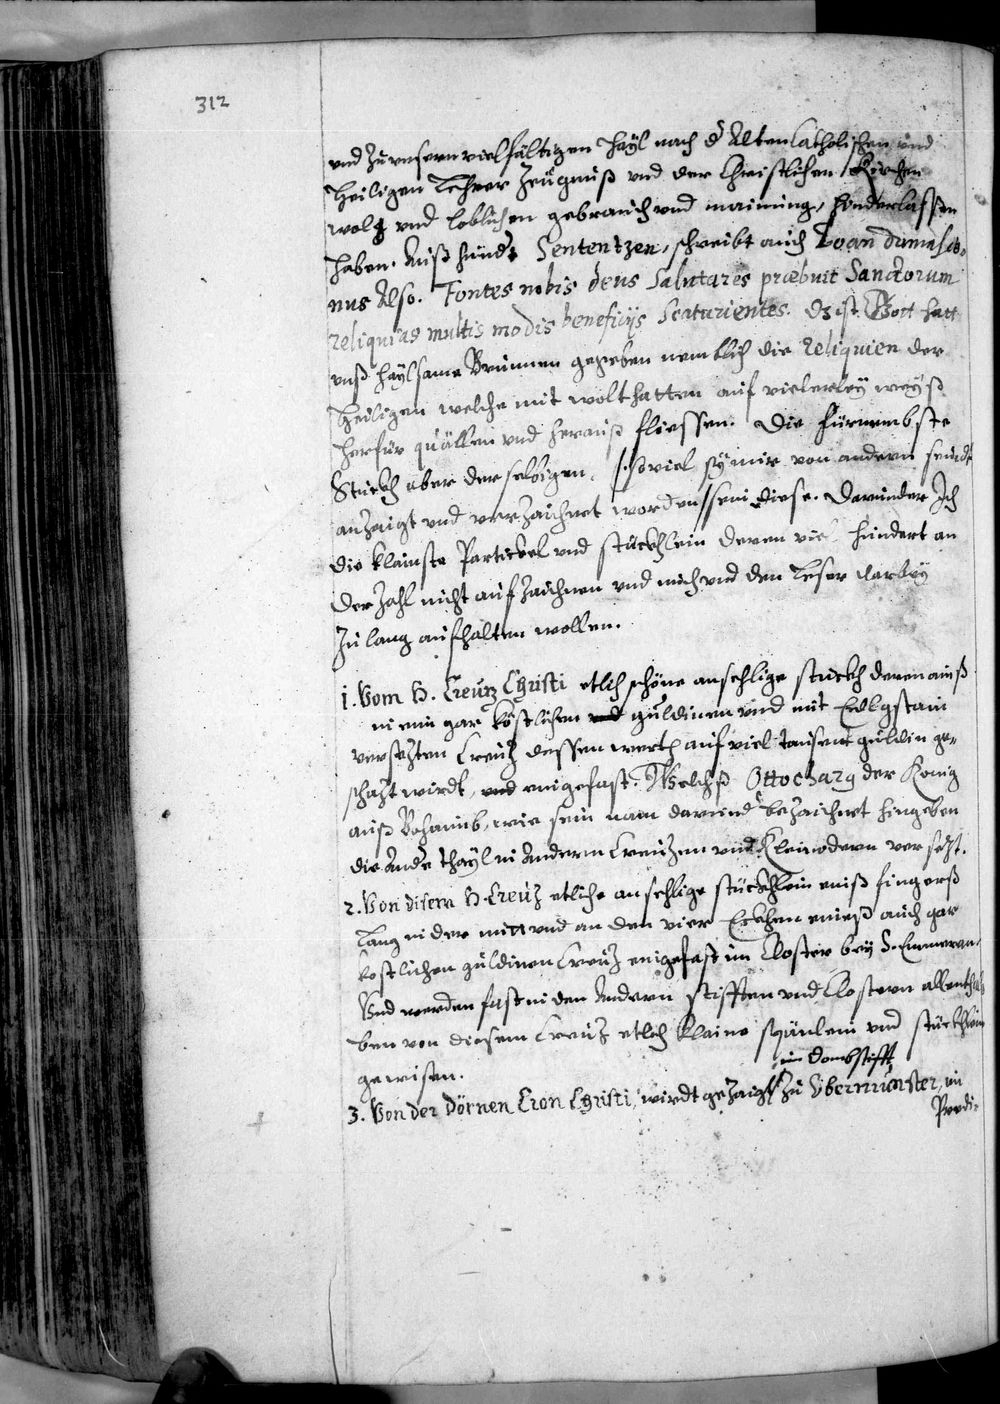 312
und zu unserm vielfältigen Hayl nach d' Alten Catholischen und
Heiligen Lehrer Zeugnuß und der Christlichen Kirchen
wolg und loblichen gebrauch und mainung, hinderlassen
haben. Auß hund't Sententzen, schreibt auch Joan damasce-
nus Also. Fontes nobis deus Salutares præbuit Sanctorum
reliquias multis modis beneficijs Scaturientes. dz ist. Gott hatt
unß haylsame Brunnen gegeben nemblich die Reliquien der
Heiligen welche mit wolthatten auf vielerley weyß
herfür quällen und herauß fliessen. Die fürnembste
Stückh aber derselbigen, so viel sy mir von andern seindt
anzaigt und verzaichnet worden sein diese. Darunder Ich
die klainste Partickel und stückhlein deren viel hundert an
der Zahl nicht aufzaichnen und mich und den Leser darbey
zu lang aufhalten wollen.
1. Vom H. Creutz Christi etlich schöne ansehlige stuckh deren ainß
in ein gar köstlichen guldinen und mit Edlgstain
versezten Creuz dessen werth auf viel tausent guldin ge-
schazt wirdt, eingefast. Welchß Ottocharg der König
auß Bohaimb, wie sein nam darund' bezaichnet hingeben
die Ande' thayl in Andern Creuzen und Kleinodern versezt.
2. Von disem H. Creuz etliche ansehlige stückhlein einß fingerß
lang in der mitt und an den vier Eckhen eineß auch gar
kostlichen guldinen Creuz eingefast im Closter bey S. Emmeran.
Und werden fast in den Andern Stifften und Clostern allenthal-
ben von diesem Creuz etlich klaine spänlein und stückhlein
gewisen.
im Dombstifft,
3. Von der dörnen Cron Christi, wirdt gezaigt zu Obermünster, in
Predi-